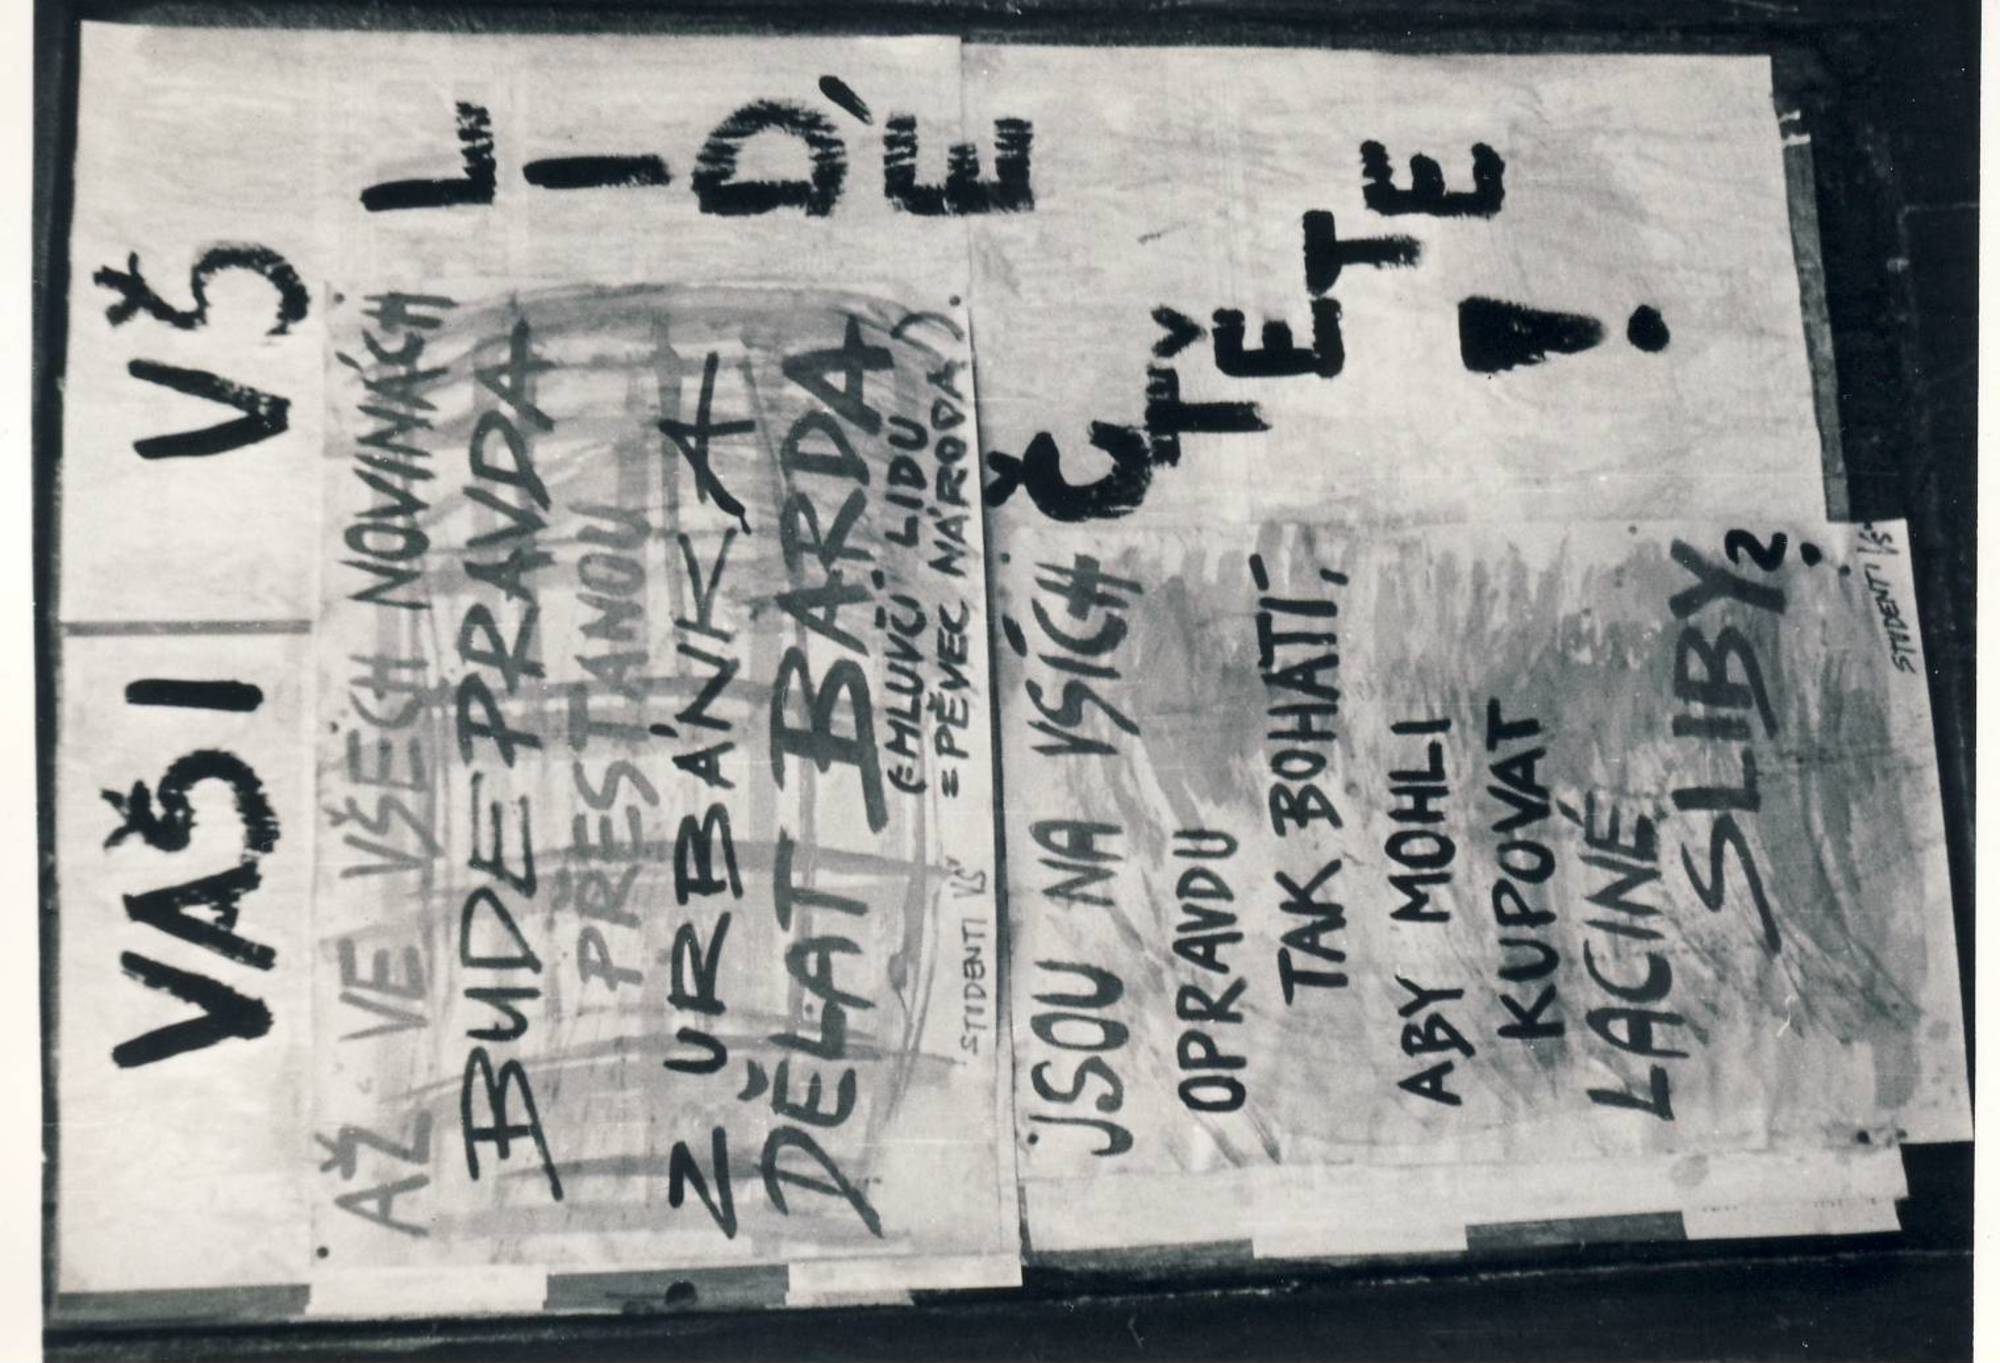 VAŠI VŠ
LIDÉ
ČTĚTE
!
AŽ VE VŠECH NOVINÁCH
BUDE PRAVDA
PŘESTANOU
Z URBÁNKA
DĚLAT BARDA
(=MLUVČÍ LIDU
=PĚVEC NÁRODA)
STUDENTI VŠ
JSOU NA VSÍCH
OPRAVDU
TAK BOHATÍ,
ABY MOHLI
KUPOVAT
LACINÉ
SLIBY?
STUDENTI VŠ